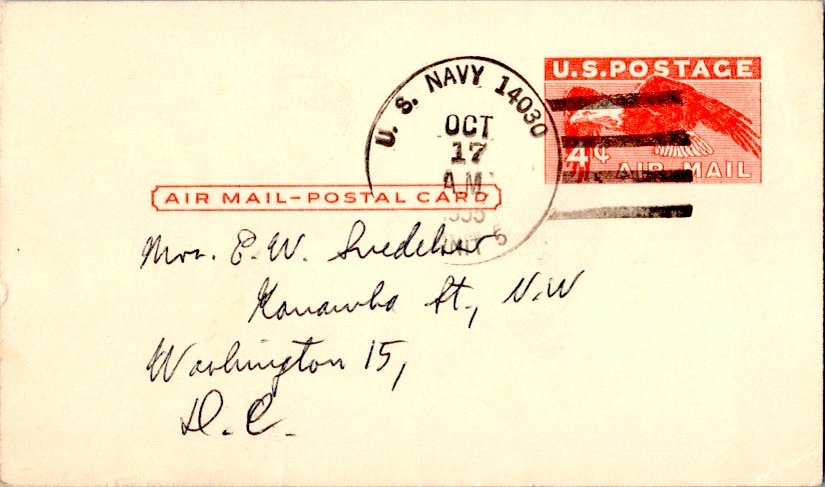 U.S.POSTAGE
4¢
AIR MAIL
U. S. NAVY 14030
OCT
17
A.M.
1955
UNIT 5
AIR MAIL-POSTAL CARD
Mrs. E. W.
Kanawha St., N.W
Washington 15,
D. C.